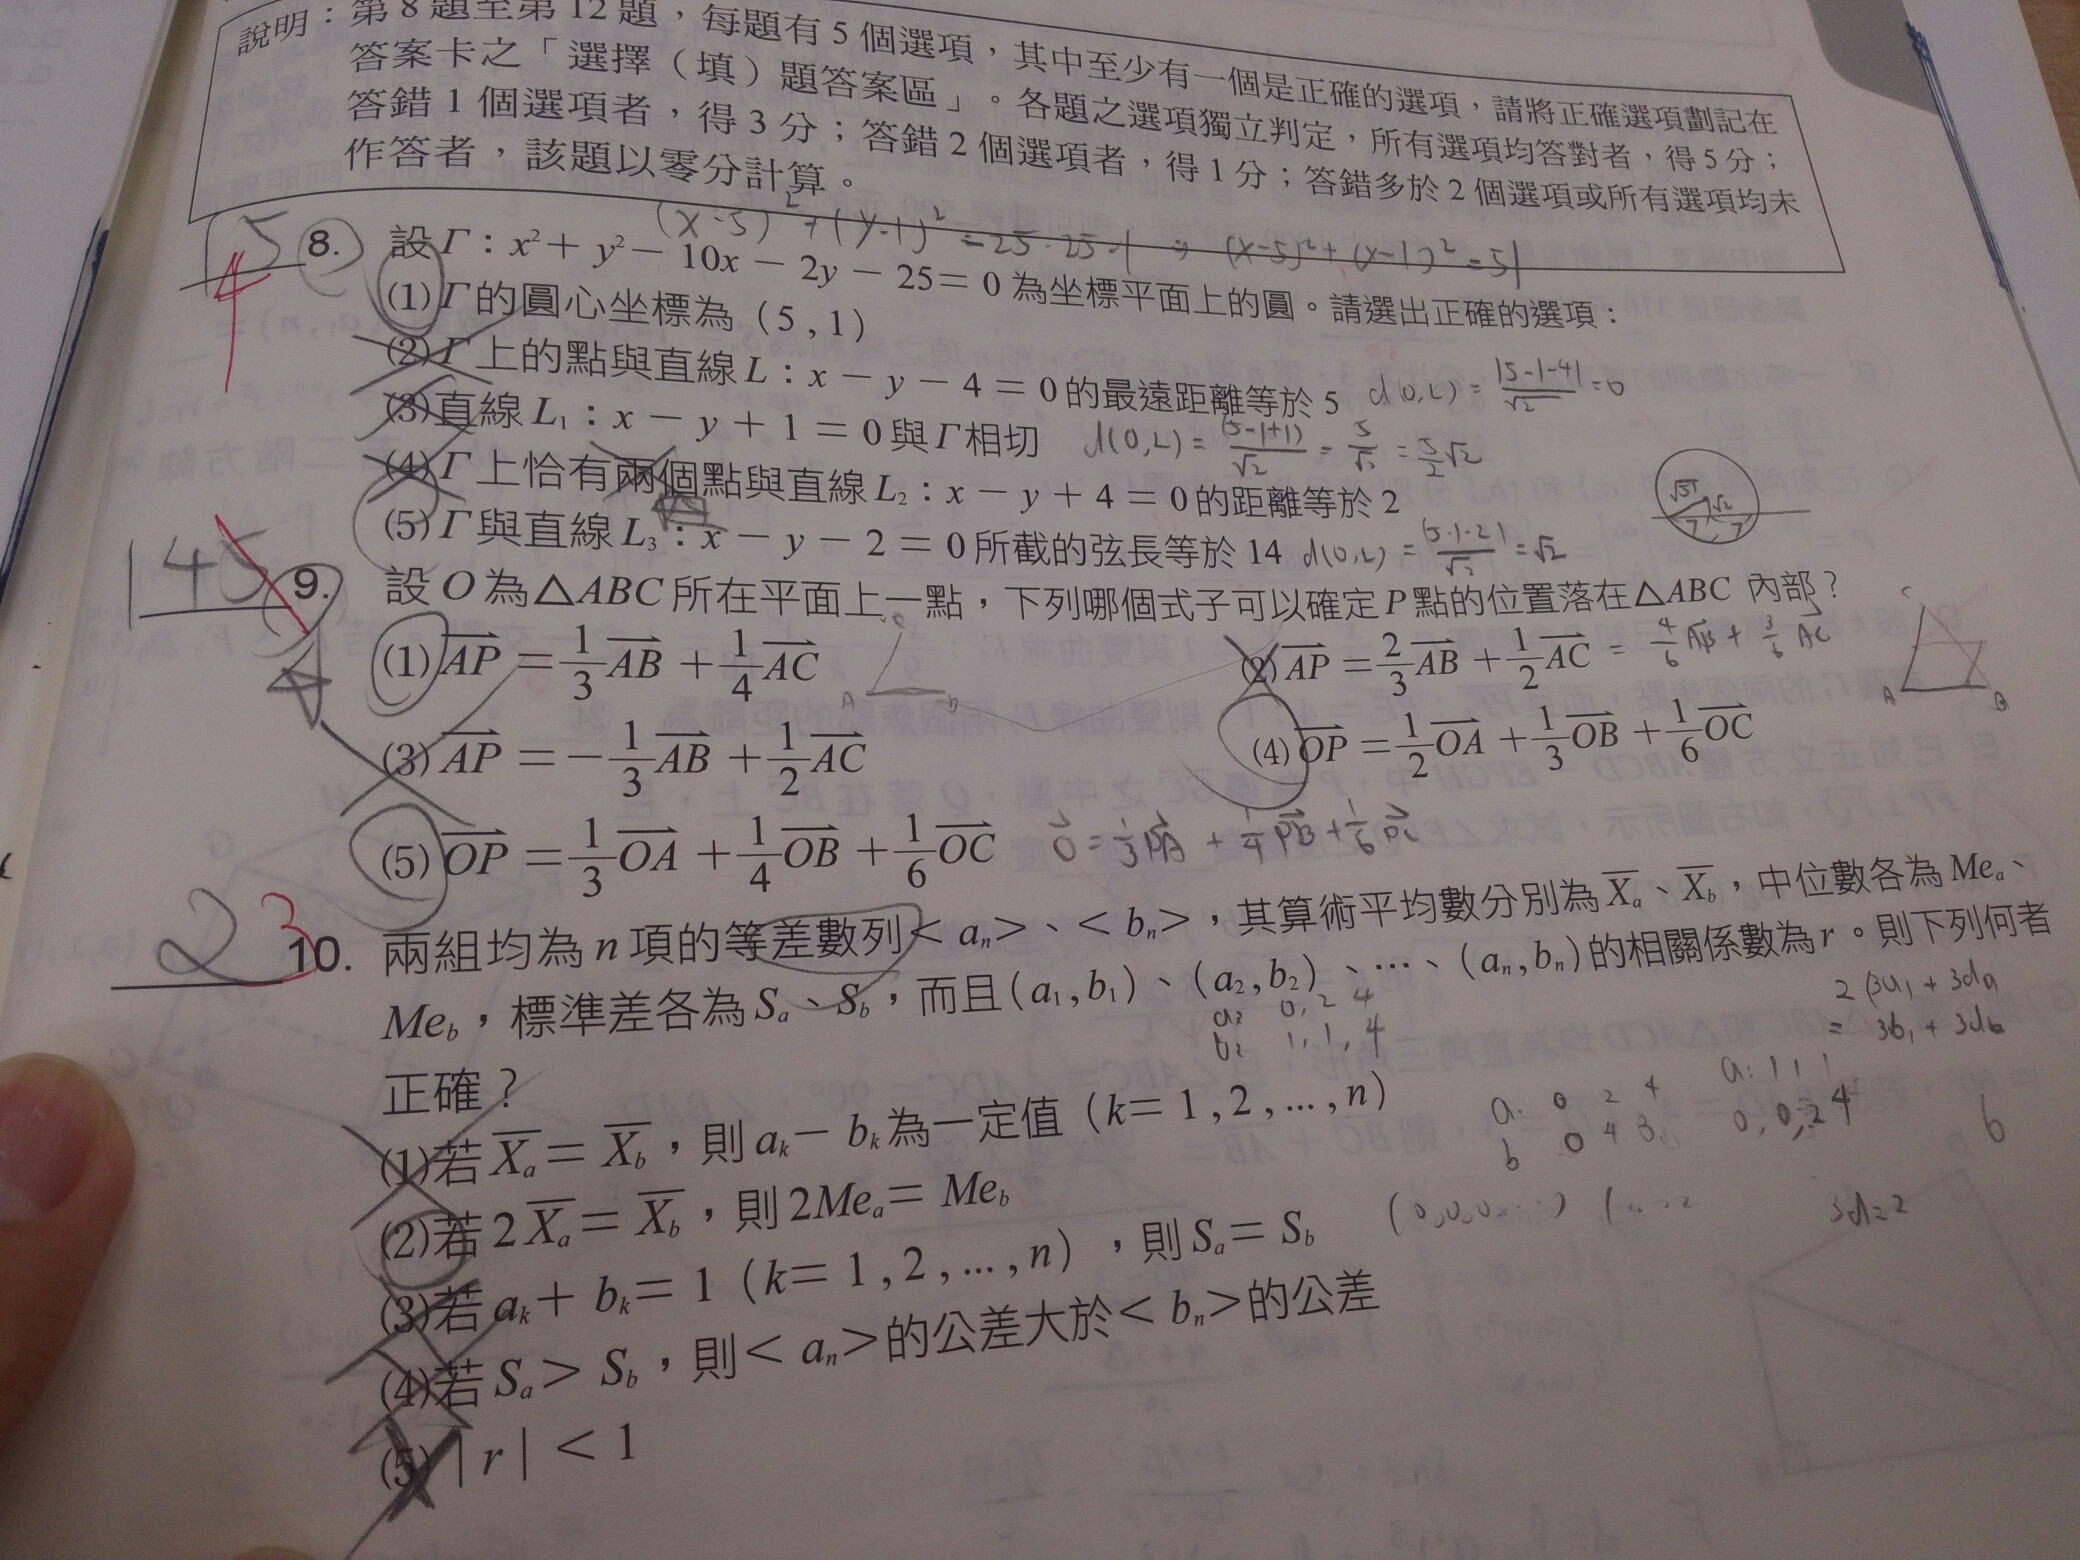 說明：第 8 題至第 12 題，每題有 5 個選項，其中至少有一個是正確的選項，請將正確選項劃記在
答案卡之「選擇（填）題答案區」。各題之選項獨立判定，所有選項均答對者，得 5 分；
答錯 1 個選項者，得 3 分；答錯 2 個選項者，得 1 分；答錯多於 2 個選項或所有選項均未
作答者，該題以零分計算。
(x-5)²+(y-1)²=25+25+1 ⇒ (x-5)²+(x-1)²=51
15 4
8. 設 Γ：x²+ y²− 10x − 2y − 25= 0 為坐標平面上的圓。請選出正確的選項：
(1) Γ 的圓心坐標為（5 , 1）
(2) Γ 上的點與直線 L：x − y − 4 = 0 的最遠距離等於 5 d(O,L) = |5-1-4|/√2 = 0
(3) 直線 L₁：x − y + 1 = 0 與 Γ 相切 d(O,L) = |5-1+1|/√2 = 5/√2 = 5/2 √2
(4) Γ 上恰有兩個點與直線 L₂：x − y + 4 = 0 的距離等於 2
(5) Γ 與直線 L₃：x − y − 2 = 0 所截的弦長等於 14 d(O,L) = |5-1-2|/√2 = √2
√51 √2
7 7
145 4
9. 設 O 為 △ABC 所在平面上一點，下列哪個式子可以確定 P 點的位置落在 △ABC 內部？
(1) AP = 1/3 AB + 1/4 AC
(2) AP = 2/3 AB + 1/2 AC = 4/6 AB + 3/6 AC
(3) AP = − 1/3 AB + 1/2 AC
(4) OP = 1/2 OA + 1/3 OB + 1/6 OC
(5) OP = 1/3 OA + 1/4 OB + 1/6 OC O = 1/3 PA + 1/4 PB + 1/6 PC
23
10. 兩組均為 n 項的等差數列 < aₙ>、< bₙ>，其算術平均數分別為 X̄ₐ、X̄b，中位數各為 Meₐ、
Meb，標準差各為 Sₐ、Sb，而且 (a₁ , b₁)、(a₂ , b₂)、…、(aₙ , bₙ) 的相關係數為 r。則下列何者
正確？
a: 0, 2 4
b: 1, 1, 4
2(3a₁ + 3dₐ
= 3b₁ + 3db
a: 1 1 1
a. 0 2 4
b 0 4 3
6
(1) 若 X̄ₐ= X̄b，則 aₖ− bₖ 為一定值（k= 1 , 2 , … , n）
(2) 若 2X̄ₐ= X̄b，則 2Meₐ= Meb
(3) 若 aₖ+ bₖ= 1（k= 1 , 2 , … , n），則 Sₐ= Sb
3d=2
(4) 若 Sₐ> Sb，則 < aₙ> 的公差大於 < bₙ> 的公差
(5) | r | < 1